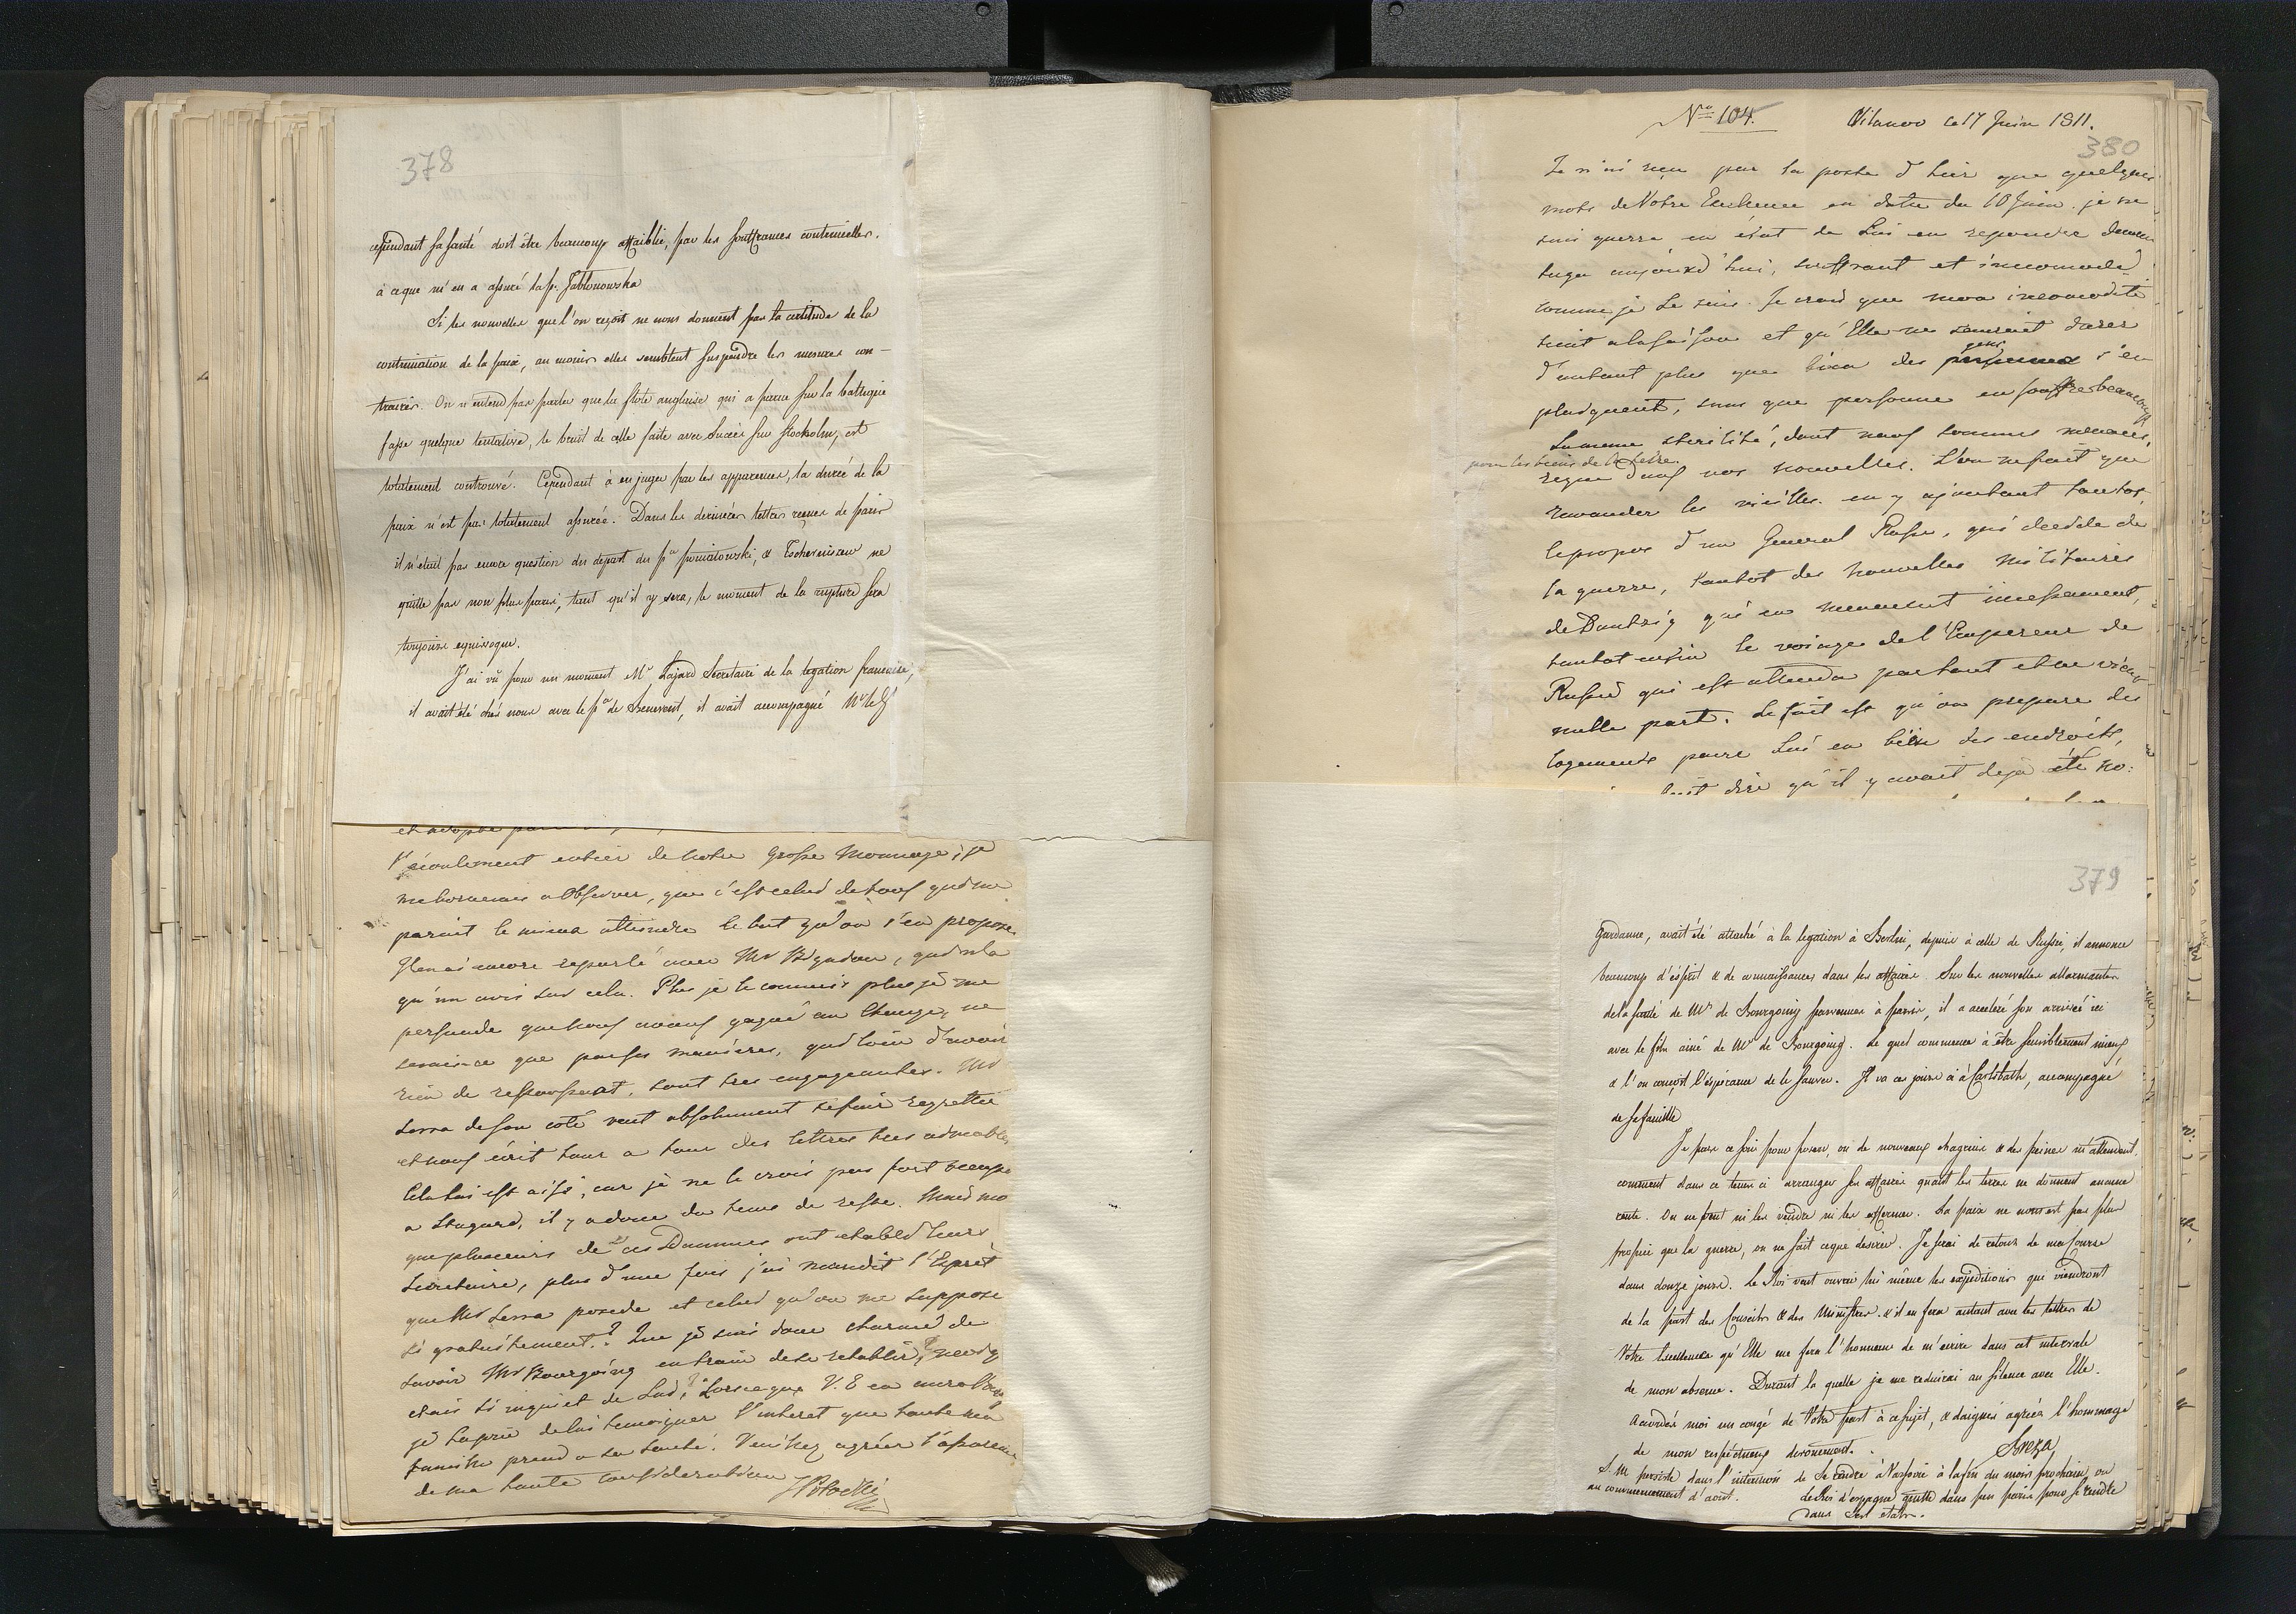 378
cependant sa santé doit être beaucoup affaiblie, par les souffrances continuelles.
à ceque m'en a assuré la Pr. Jablonowska
Si les nouvelles que l'on reçoit ne nous donnent pas la certitude de la
continuation de la paix, au moins elles semblent suspendre les mesures con-
traires. On n'entend pas parler que la flote anglaise qui a parue sur la baltique
fasse quelque tentative, le bruit de celle faite avec succès sur Stockolm, est
totalement controuvé. Cependant à en juger par les apparences, la durée de la
paix n'est pas totalement assurée. Dans les dernières lettres reçues de paris
il n'était pas encore question du départ du Pce poniatowski, & Tschernisew ne
quitte pas non plus paris, tant qu'il y sera, le moment de la rupture sera
toujours equivoque.
J'ai vû pour un moment Mr Lajard Secretaire de la legation francaise,
il avait été chés nous avec le Pce de Benevent, il avait accompagné Mr le Gl
l'écoulement entier de notre grosse Monnaye; je
me bornerais a observer, que c'est celui de tous qui me
parait le mieux atteindre le but qu'on s'en propose.
J'en ai encore reparlé avec Mr Bignon, qui n'a
qu'un avis sur cela. Plus je le connais plus je me
persuade que nous avons gagné au change, ne
serais-ce que par ses manières, qui loin d'avoir
rien de repoussant, sont tres engageantes. Mr
Serra de son coté veut absolument se faire regretter
et nous écrit tour a tour des lettres tres aimables
Cela lui est aisé, car je ne le crois pas fort occupé
a Stugard, il y a donc du tems de reste.
que plusieurs de ces Dammes ont etabli leurs
Secretaire, plus d'une fois j'ai maudit l'Esprit
que Mr Serra posede et celui qu'on me suppose
si gratuitement. Que je suis donc charmé de
savoir Mr Bourgoing en train de se retablir,
etais si inquiet de Lui, Lorsque V. E en aura
je la prie de lui temoigner l'interet que toute ma
famille prend a sa santé. Veuillez agréer l'assurance
de ma haute consideration
SPotocki
No 104. Vilanov ce 17 Juin 1811.
380
Je n'ai reçu par la poste d'hier que quelques
mots de Votre Excellence en datte du 10 Juin. je ne
suis guerre en état de Lui en repondre davan
tage aujourd'hui, souffrant et incomodé
comme je Le suis. Je crois que mon incomodité
tient a la saison et qu'Elle ne saurait durer
d'autant plus que bien des gens s'en
plaignent, sans que personne en souffre beaucoup
La meme sterilité, dont nous sommes menacés,
pour les biens de la terre.
regne dans nos nouvelles. L'on ne fait que
remander les vieilles en y ajoutant tantot
le propos d'un General Russe, qui decide de
la guerre, tantot des nouvelles militaires
de Dantzig qui en menacent incessament,
tantot enfin le voiage de l'Empereur de
Russie qui est attendu partout et ne vient
nulle part. Le fait est qu'on prepare des
logements pour Lui en bien des endroits,
dire qu'il y avait deja été
379
Gardanne, avait été attaché à la legation à Berlin, depuis à celle de Russie, il annonce
beaucoup d'esprit & de connaissances dans les affaires. Sur les nouvelles allarmantes
de la santé de Mr de Bourgoing parvenues à paris, il a acceleré son arrivée ici
avec le fils ainé de Mr de Bourgoing. Le quel commence à être sensiblement mieux
& l'on conçoit l'éspérance de le sauver. Il va ces jours ci à Carlsbath, accompagné
de sa famille
Je pars ce soir pour posen, où de nouveaux chagrins & des peines m'attendent.
comment dans ce tems ci arranger ses affaires quant les terres ne donnent aucune
rente. On ne peut ni les vendre ni les affermer. La paix ne nous est pas plus
propice que la guerre, on ne sait ceque desirer. Je serai de retour de ma course
dans douze jours. Le Roi veut ouvrir lui même les expéditions qui viendront
de la part des Conseils & des Ministres. & il en fera autant avec les lettres de
Votre Excellence qu'Elle me fera l'honneur de m'ecrire dans cet intervale
de mon absence. Durant la quelle je me reduirai au silence avec Elle.
Accordés moi un congé de Votre part à ce sujet, & daignés agréer l'hommage
de mon respectueux devouement.
Breza
S. M persiste dans l'intention de se rendre à Varsovie à la fin du mois prochain, ou
au commencement d'aout. Le Roi d'espagne quitte dans peu paris pour se rendre
dans Ses etats.